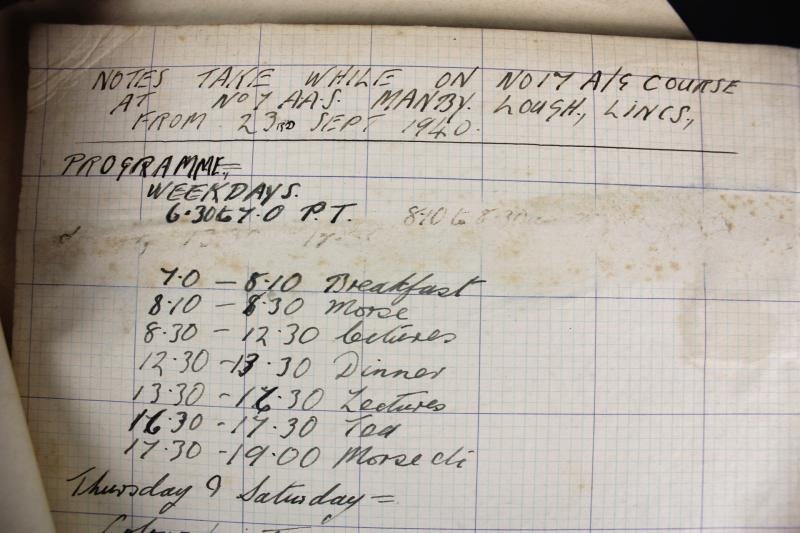 NOTES TAKE WHILE ON NO 17 A/G COURSE
AT NO 7 A.A.S. MANBY. LOUGH., LINCS.,
FROM 23RD SEPT 1940.
PROGRAMME,=
WEEKDAYS.
6.30 to 7.0 P.T. 8.10 to 8.30
7.0 - 8.10 Breakfast
8.10 - 8.30 Morse
8.30 - 12.30 lectures
12.30 - 13.30 Dinner
13.30 - 16.30 Lectures
16.30 - 17.30 Tea
17.30 - 19.00 Morse
Thursday & Saturday =